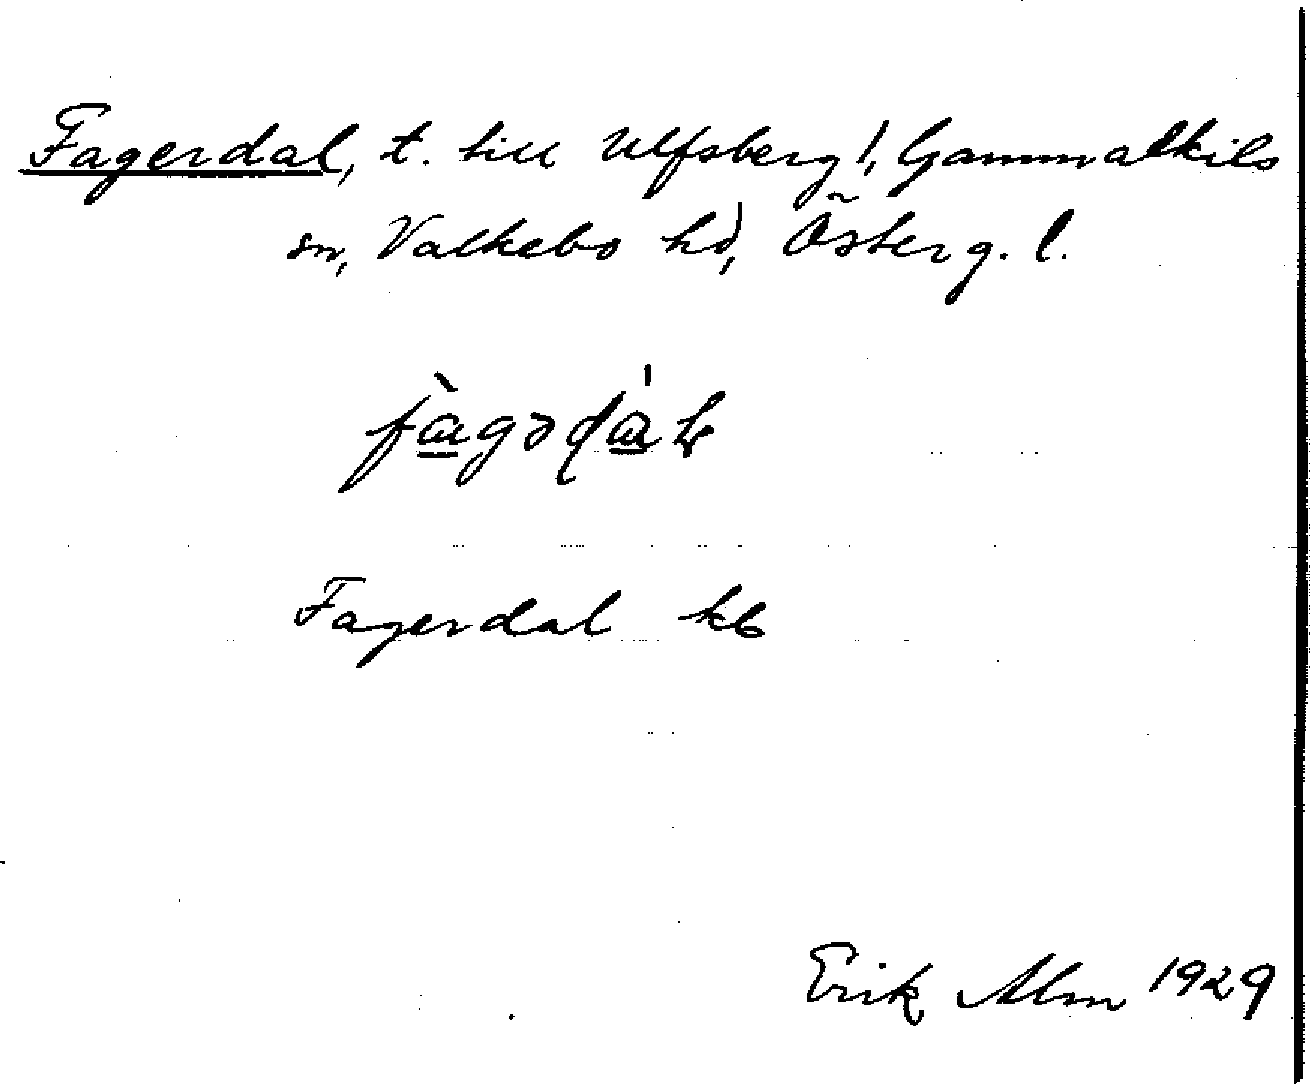 Fagerdal, t. till Ulfsberg 1, Gammalkils
sn, Valkebo hd, Österg. l.
Fagerdal kb
Erik Alm 1929